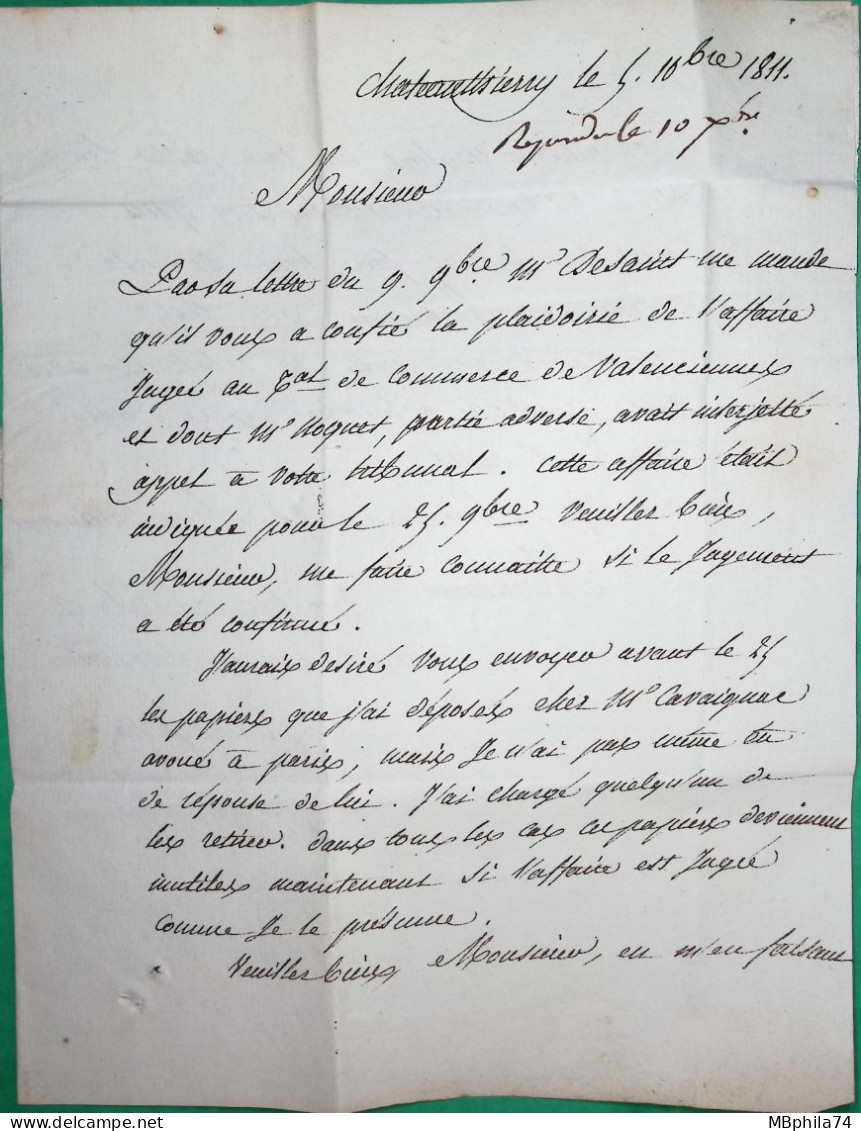 Chateauthierry le 5. 10bre 1811.
Repondu le 10 Xbre
Monsieur
Par sa lettre du 9. 9bre Mr Desaint me mande
qu'il vous a confié la plaidoirie de l'affaire
Jugée au Tal de Commerce de Valenciennes
et dont Mr Hoquet, partie adverse, avait interjetté
appel à votre tribunal. Cette affaire était
indiquée pour le 25. 9bre Veuillez bien,
Monsieur, me faire connaitre si le Jugement
a été confirmé.
J'aurais desiré vous envoyer avant le 25
les papiers que j'ai déposés chez Mr Cavaignac
avoué à paris, mais Je n'ai pas même eu
de réponse de lui. J'ai chargé quelqu'un de
les retirer. dans tous les cas ces papiers deviennent
inutiles maintenant si l'affaire est Jugée
comme Je le présume.
Veuillez bien, Monsieur, en m'en faisant
MBphila74